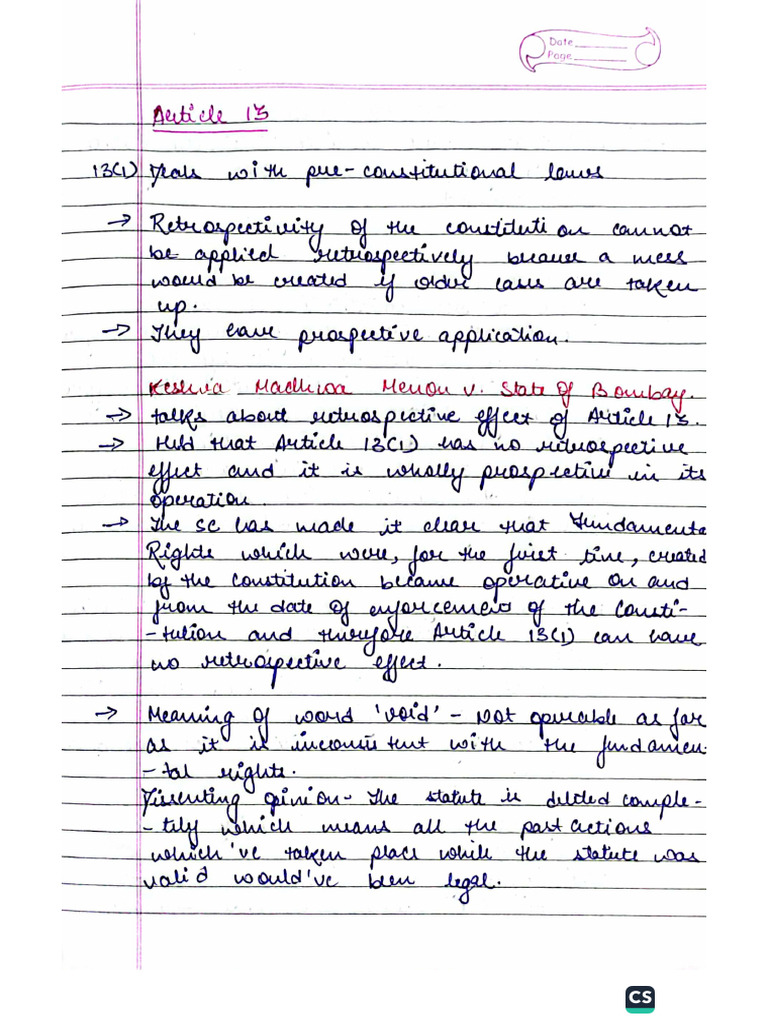 Date
Page
Article 13
13(1) Deals with pre-constitutional laws
→ Retrospectivity of the constitution cannot
be applied retrospectively because a mess
would be created if older cases are taken
up.
→ They have prospective application.
Keshva Madhva Menon v. State of Bombay.
→ talks about retrospective effect of Article 13.
→ Held that Article 13(1) has no retrospective
effect and it is wholly prospective in its
operation.
→ The SC has made it clear that Fundamenta
Rights which were, for the first time, created
by the Constitution became operative on and
from the date of enforcement of the Consti-
-tution and therefore Article 13(1) can have
no retrospective effect.
→ Meaning of word 'void' - Not operable as far
as it is inconsistent with the fundamen-
-tal rights.
Dissenting opinion- The statute is deleted comple-
-tely which means all the past actions
which've taken place while the statute was
valid would've been legal.
CS